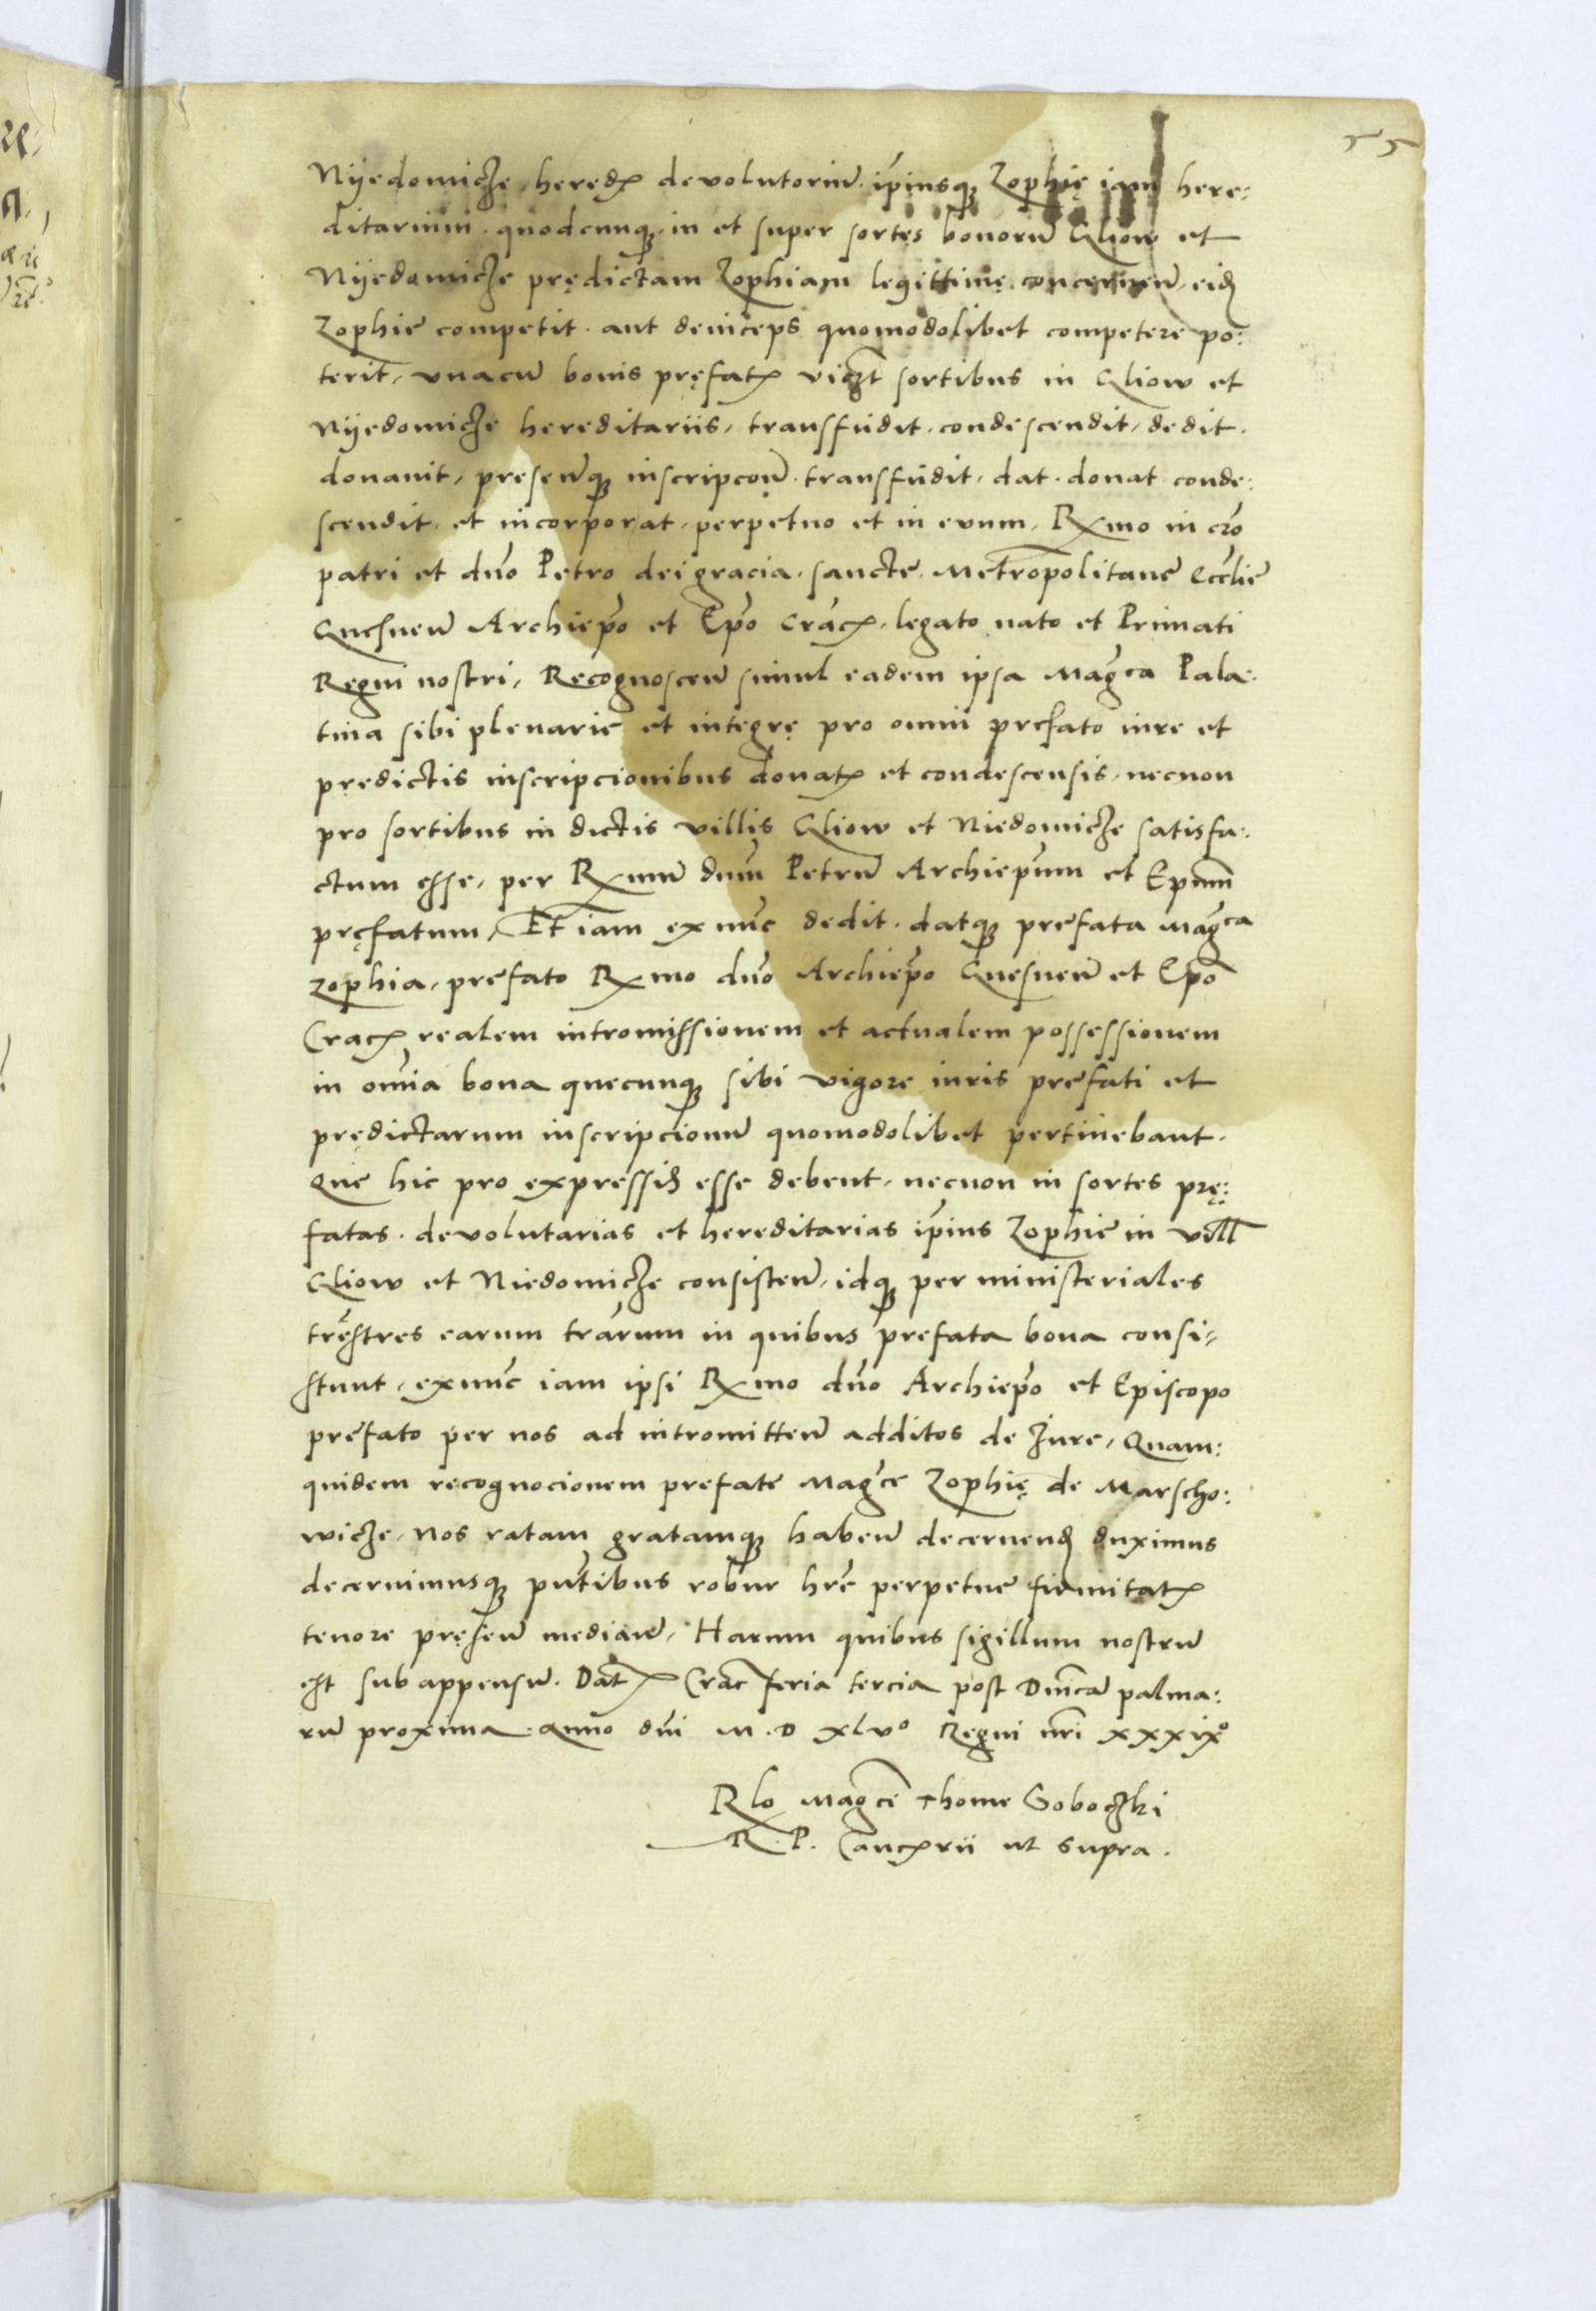 55
Nyedomicze, heredum devolutorium. ipsiusque Zophię iam here:
ditarium. quodcunque. in et super sortes bonorum Gliow et
Nyedomicze prędictam Zophiam legittimę concernen. eidem
Zophie competit. aut deinceps quomodolibet competere po:
terit, unacum bonis pręfatis videlicet sortibus in Gliow et
Nyedomicze hereditariis, transfudit. condescendit, dedit.
donavit, presenique inscripcione. transfudit. dat. donat. conde:
scendit. et incorporat, perpetuo et in evum, Rxmo in cro
patri et dno Petro dei gracia. sancte. Metropolitane Ecclie
Gnesnen Archiepo et Epo Crac. legato nato et Primati
Regni nostri, Recognoscen simul eadem ipsa Magca Pala:
tina sibi plenarie et integrę pro omni prefato iure et
predictis inscripcionibus donatis et condescensis, necnon
pro sortibus in dictis villis Gliow et Niedomicze satisfa:
ctum esse, per Rxmum dnum Petrum Archiepum et Epum
pręfatum, Et iam ex nunc dedit. datque prefata Magca
Zophia, prefato Rxmo dno Archiepo Gnesnen et Epo
Crac realem intromissionem et actualem possessionem
in omnia bona quecunque sibi vigore iuris prefati et
prędictarum inscripcionum quomodolibet pertinebant.
Que hic pro expressis esse debent, necnon in sortes prę:
fatas. devolutarias et hereditarias ipsius Zophie in vill
Gliow et Niedomicze consisten, idque per ministeriales
trestres earum trarum in quibus prefata bona consi-
stunt, exnunc iam ipsi Rxmo dno Archiepo et Episcopo
prefato per nos ad intromitten additos de Iure, Quam:
quidem recognocionem prefate Magce Zophię de Marscho:
wicze, Nos ratam gratamque haben decernend duximus
decernimusque pntibus robur hre perpetue firmitatis
tenore pręsen median, Harum quibus sigillum nostrum
est subappensum. Dat Crac feria tercia post Dnica palma:
rum proxima. Anno dni M.D xlvo Regni nri xxxixo
Rlo Magce Thome Soboczki
R. P. Cancrii ut supra.